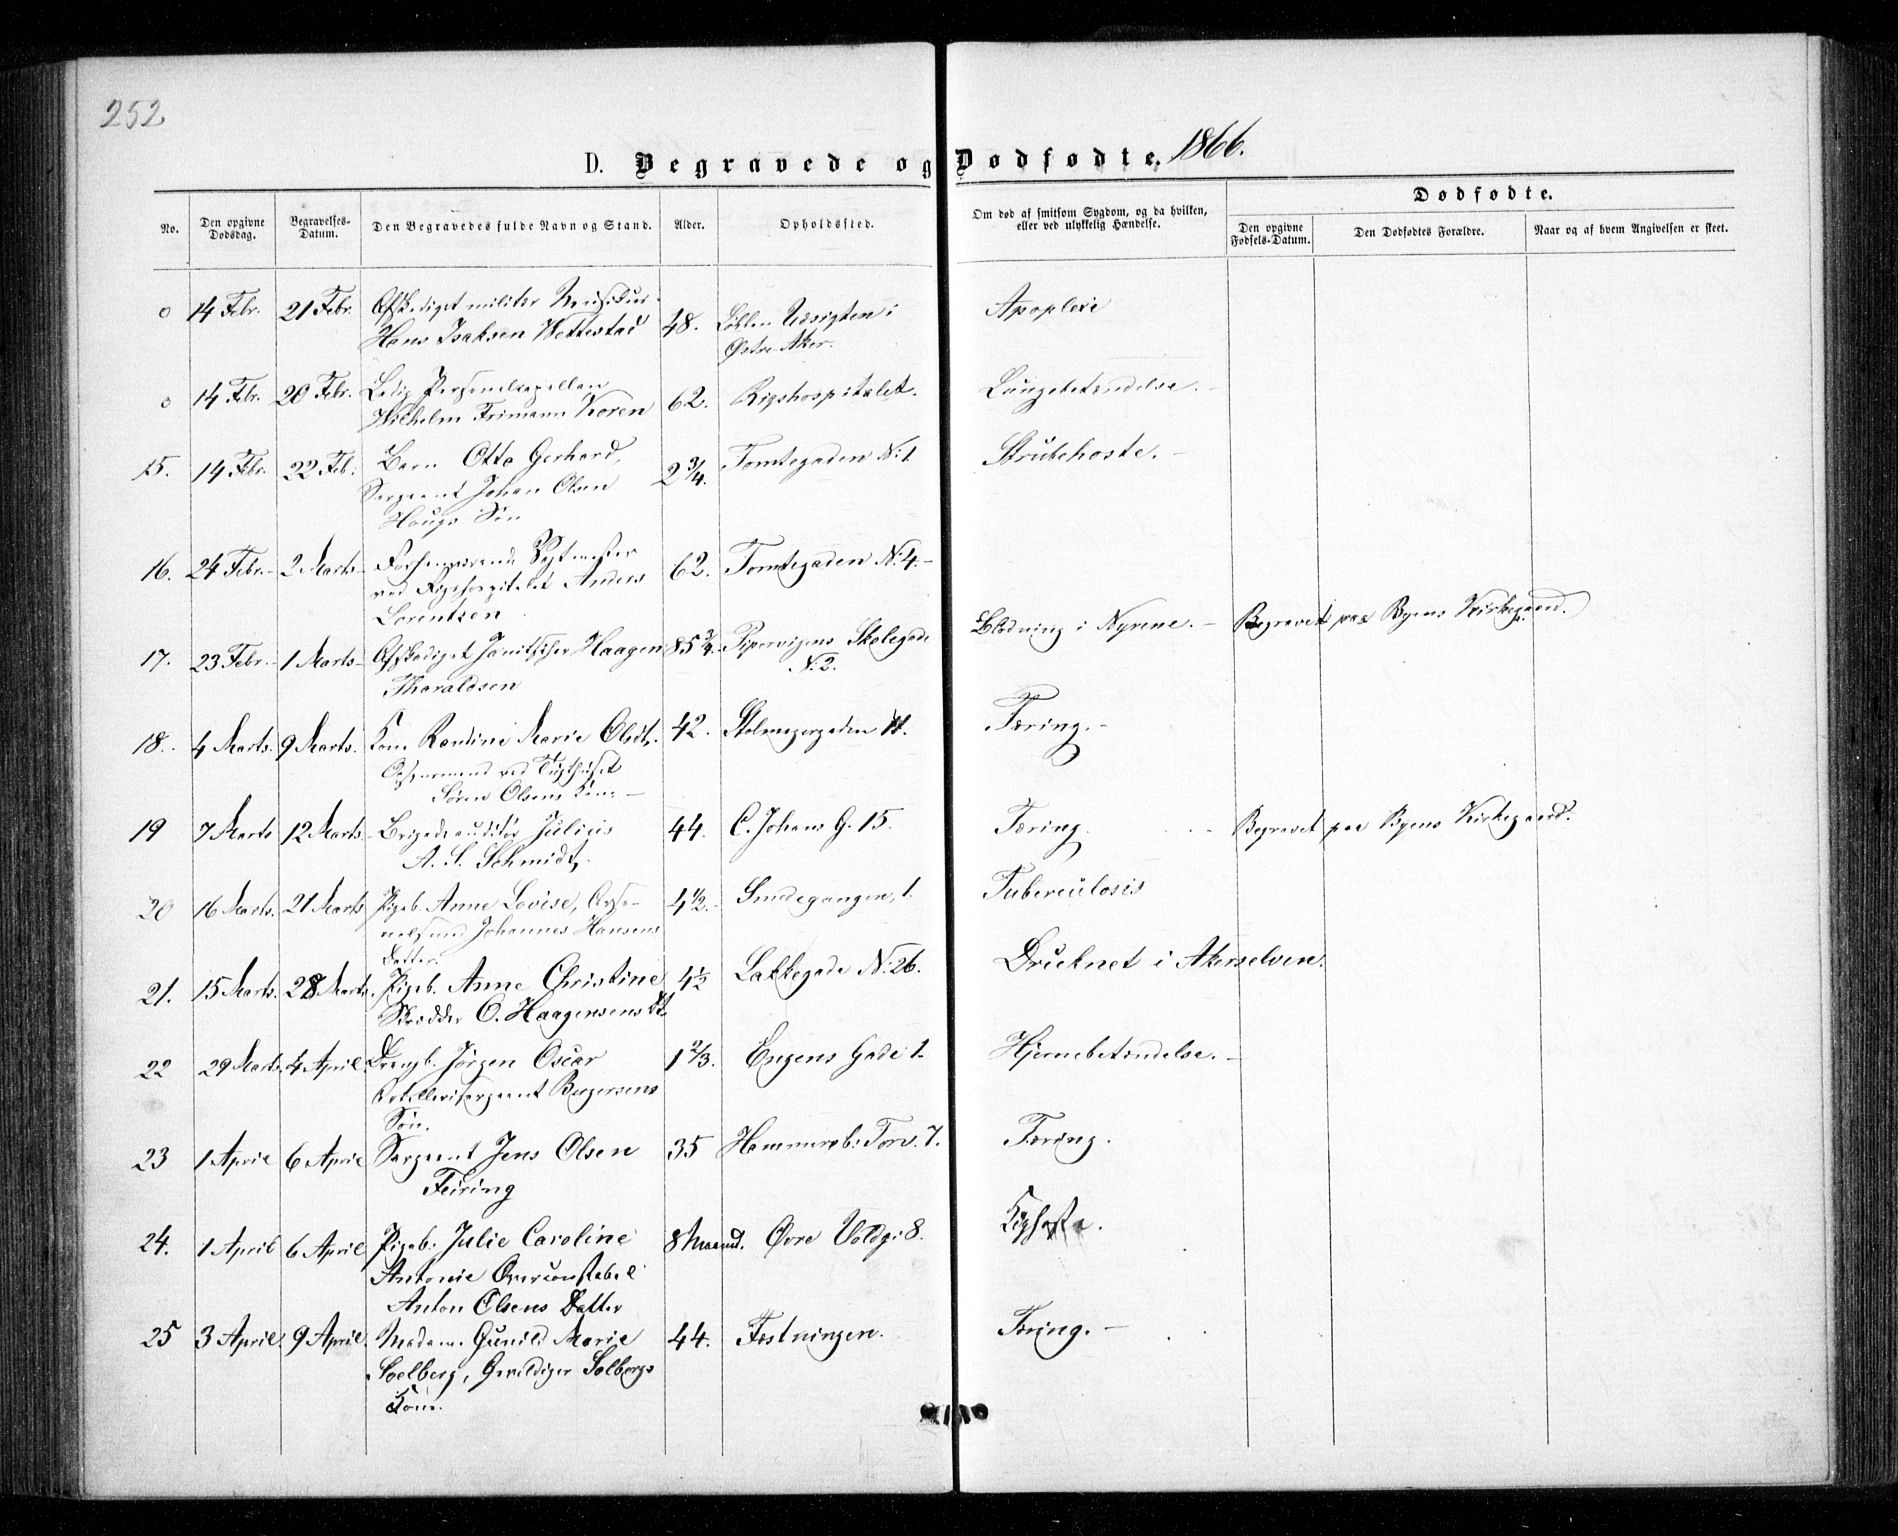 252
D. Begravede og Dødfødte. 1866.
No.
Den opgivne Dødsdag.
Begravelses-Datum.
Den Begravedes fulde Navn og Stand.
Alder.
Opholdssted.
Om død af smitsom Sygdom, og da hvilken, eller ved ulykkelig Hændelse.
Dødfødte.
Den opgivne Fødsels-Datum.
Den Dødfødtes Forældre.
Naar og af hvem Angivelsen er skeet.
o 14 Febr. 21 Febr. Afskediget militær Musikus
Hans Isaksen Wettestad 48. Løkken Udsigten i Apoplexi
Østre Aker.
o 14 Febr. 20 Febr. Ledig Personelcapellan
Wilhelm Frimann Koren 62. Rigshospitalet. Lungebetændelse.
15. 14 Febr. 22 Feb. Barn Otto Gerhard, 2 3/4. Tomtegaden N: 1. Strubehoste.
Sergeant Johan Olsen
Haugs Søn
16. 24 Febr. 2 Marts Forhenværende
ved Rigshospitalet Anders 62. Tomtegaden N: 4.
Lorentzen
17. 23 Febr. 1 Marts Afskediget Janitschar Haagen 85 3/4. Pipervigens Skolegade Blødning i Nyrene. Begravet paa Byens Kirkegaard.
Thoraldsen N: 2.
18. 4 Marts. 9 Marts. Kone Randine Marie Olsdt. 42. Stolmagergaden 11. Tæring.
Opsynsmand ved Tugthuset
Søren Olsens Kone
19 7 Marts 12 Marts Brigadeauditør Julius 44. C. Johans G. 15. Tæring. Begravet paa Byens Kirkegaard.
A. S. Schmidt.
20 16 Marts. 21 Marts Pigeb. Anne Lovise, 4 1/2. Smedegangen, 1. Tuberculosis
Johannes Hansens
Datter.
21. 15 Marts. 28 Marts. Pigeb. Anne Christine 4 1/2 Lakkegade N: 26. Drucknet i Akerselven.
Skrædder O. Haagensens Dt.
22 29 Marts. 4 April. Drengb. Jørgen Oscar 1 2/3. Engens Gade 1. Hjernebetændelse.
Artillerisergeant Bergersens
Søn.
23 1 April 6 April Sergeant Jens Olsen 35 Hammersb: Torv. 7. Tæring.
Feiring
24. 1 April 6 April Pigeb: Julie Caroline 8 Maaned. Øvre Voldg: 8. Kighoste.
Antonie Overconstabel
Anton Olsens Datter
25 3 April. 9 April. Madam. Gunild Marie 44. Fæstningen. Tæring.
Soelberg, Gevaldiger Solbergs
Kone.